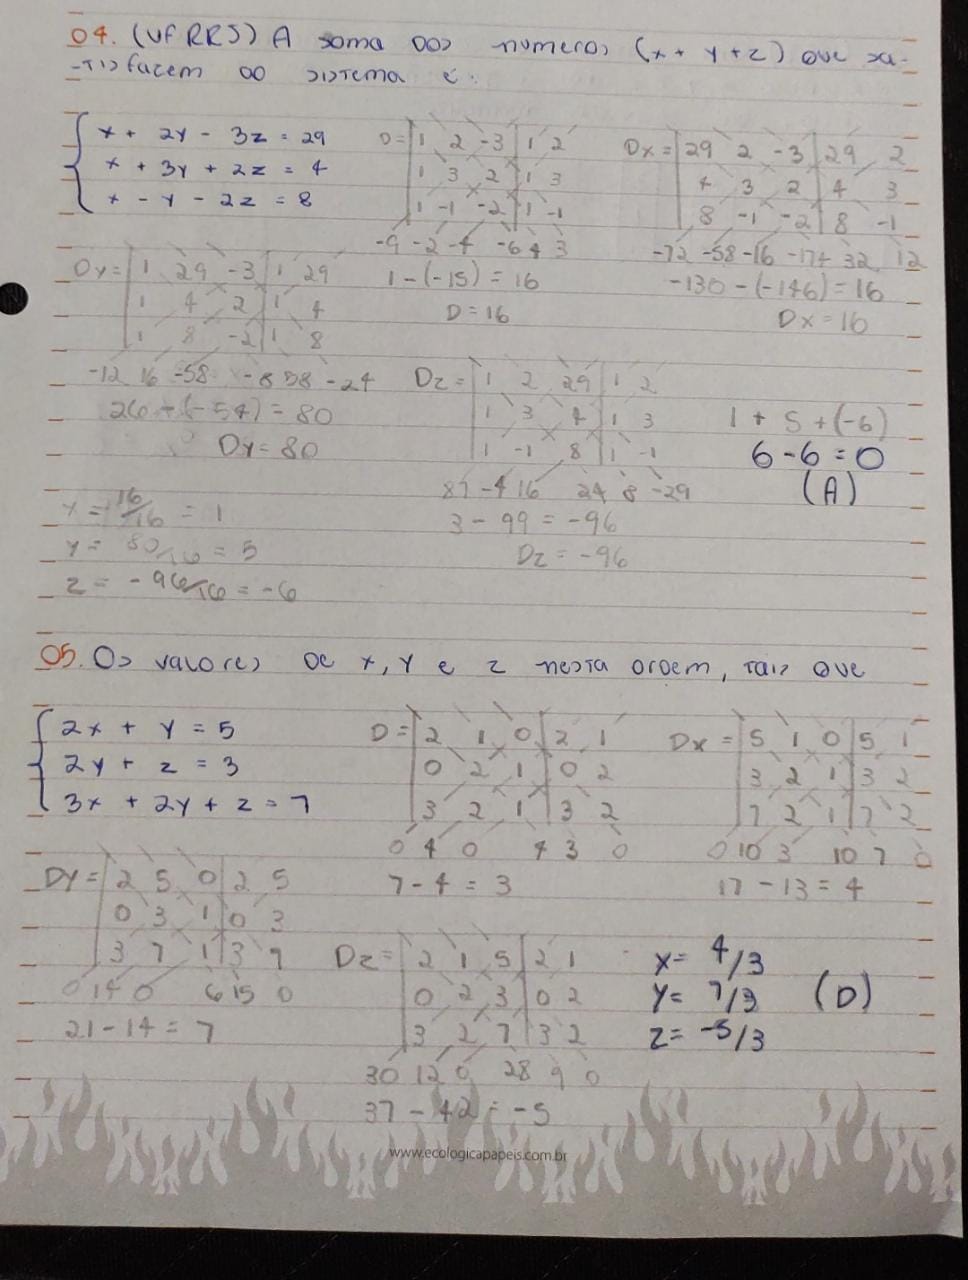 04. (UFRRJ) A soma dos numeros (x + y + z) que sa-
-tisfazem ao sistema é:
x + 2y - 3z = 29
x + 3y + 2z = 4
x - y - 2z = 8
D= 1 2 -3 1 2
1 3 2 1 3
1 -1 -2 1 -1
-9 -2 -4 -6 4 3
1 - (-15) = 16
D = 16
Dx = 29 2 -3 29 2
4 3 2 4 3
8 -1 -2 8 -1
-72 -58 -16 -174 32 12
-130 - (-146) = 16
Dx = 16
Dy = 1 29 -3 1 29
1 4 2 1 4
1 8 -2 1 8
-12 16 -58 -8 58 -24
26 + (-54) = 80
Dy = 80
Dz = 1 2 29 1 2
1 3 4 1 3
1 -1 8 1 -1
87 -4 16 24 8 -29
3 - 99 = -96
Dz = -96
1 + 5 + (-6)
6 - 6 = 0
(A)
x = 16/16 = 1
y = 80/16 = 5
z = -96/16 = -6
05. Os valores de x, y e z nesta ordem, tais que
2x + y = 5
2y + z = 3
3x + 2y + z = 7
D = 2 1 0 2 1
0 2 1 0 2
3 2 1 3 2
0 4 0 4 3 0
7 - 4 = 3
Dx = 5 1 0 5 1
3 2 1 3 2
7 2 1 7 2
0 10 3 10 7 0
17 - 13 = 4
Dy = 2 5 0 2 5
0 3 1 0 3
3 7 1 3 7
0 14 0 6 15 0
21 - 14 = 7
Dz = 2 1 5 2 1
0 2 3 0 2
3 2 7 3 2
30 12 0 28 9 0
37 - 42 = -5
x = 4/3
y = 7/3
z = -5/3
(D)
www.ecologicapapeis.com.br